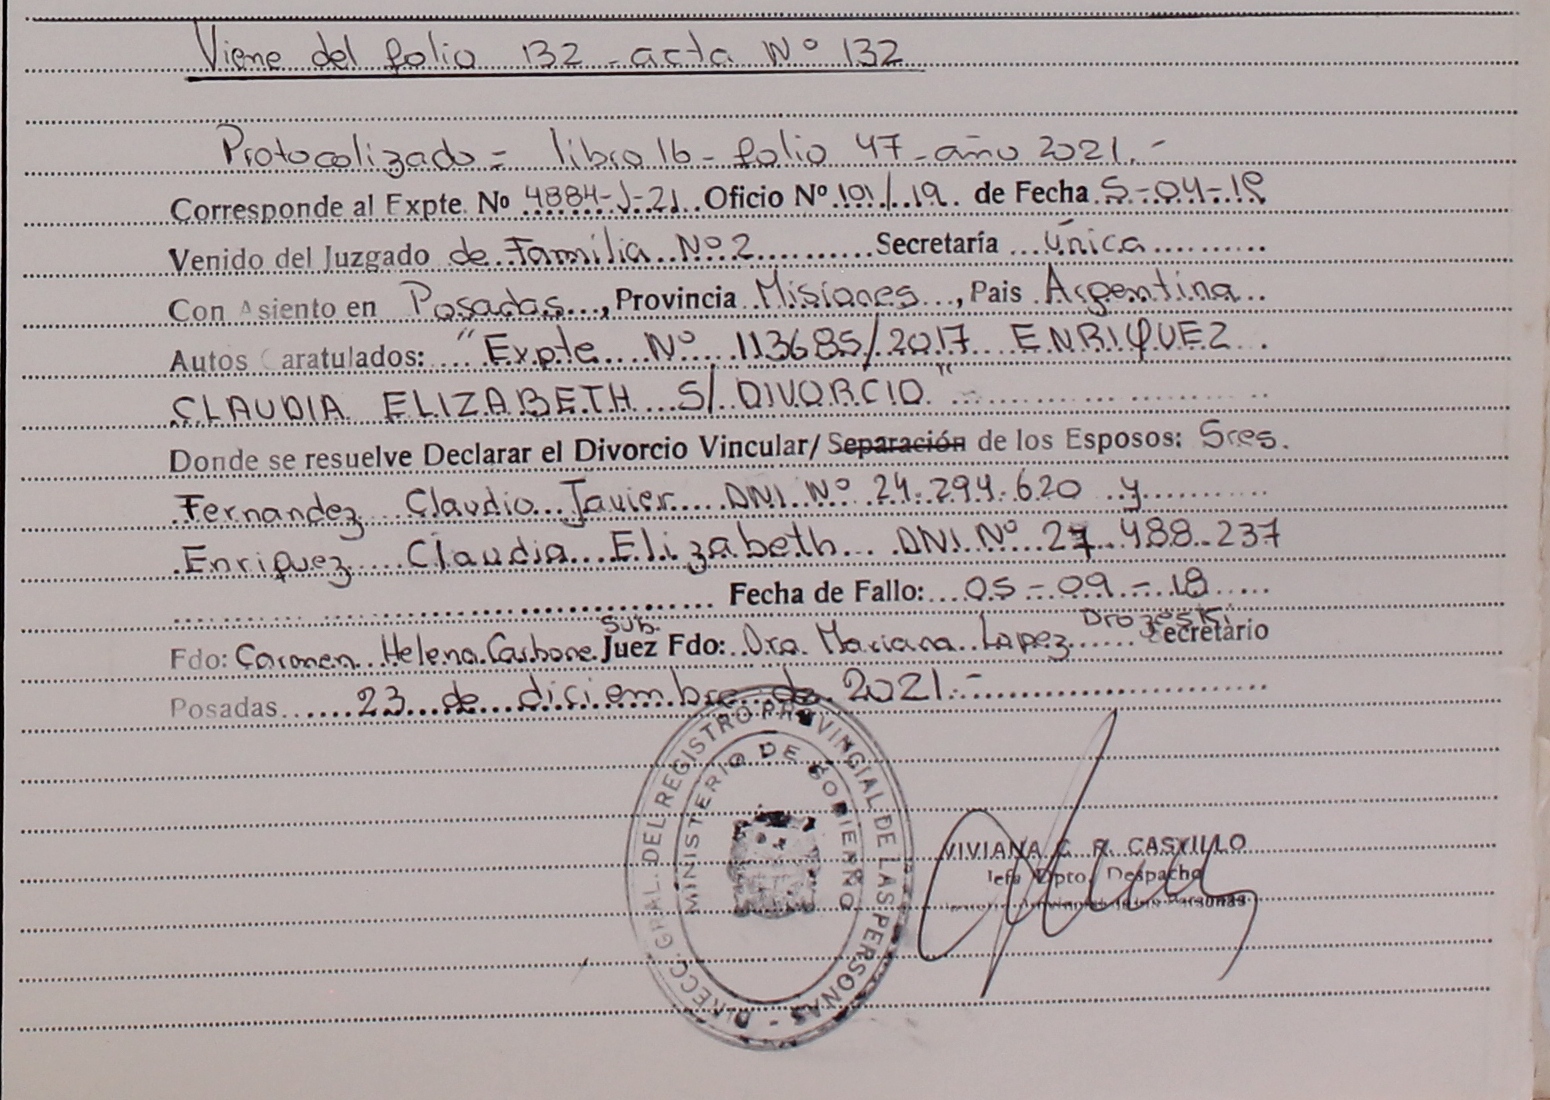 Viene del folio 132 - acta Nº 132
Protocolizado = libro 16 - folio 47 - año 2021.-
Corresponde al Expte. Nº 4884-J-21. Oficio Nº 101/19. de Fecha 5-04-19
Venido del Juzgado de Familia Nº 2 Secretaría única
Con Asiento en Posadas, Provincia Misiones, Pais Argentina
Autos Caratulados: "Expte Nº 113685/2017 ENRIQUEZ
CLAUDIA ELIZABETH S/ DIVORCIO"
Donde se resuelve Declarar el Divorcio Vincular/ Separación de los Esposos: Sres.
Fernandez Claudio Javier DNI Nº 24.294.620 y
Enriquez Claudia Elizabeth DNI Nº 27.488.237
Fecha de Fallo: 05-09-18
Fdo: Carmen Helena Carbone Sub. Juez Fdo: Dra. Mariana Lopez Drozeski Secretario
Posadas 23 de diciembre de 2021.-
DIRECC. GRAL. DEL REGISTRO PROVINCIAL DE LAS PERSONAS -
MINISTERIO DE GOBIERNO
VIVIANA C. R. CASTILLO
Jefa Dpto. Despacho
de las Personas